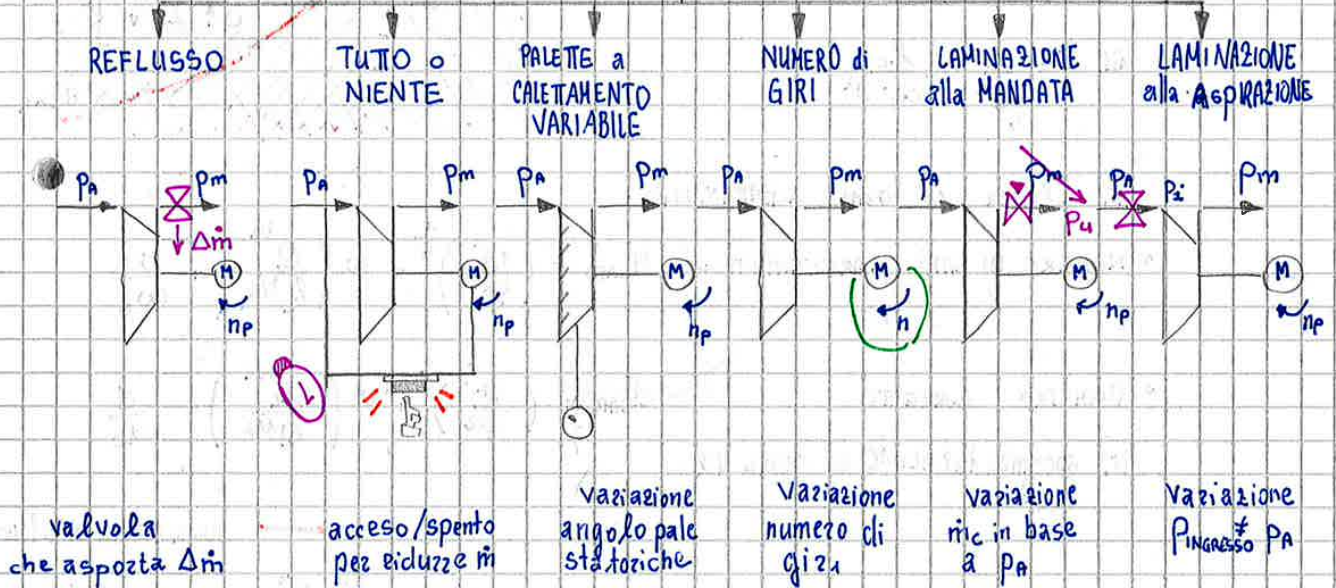 REFLUSSO
TUTTO o
NIENTE
PALETTE a
CALETTAMENTO
VARIABILE
NUMERO di
GIRI
LAMINAZIONE
alla MANDATA
LAMINAZIONE
alla ASPIRAZIONE
PA
Pm
Δṁ
M
np
PA
Pm
M
np
PA
Pm
M
np
PA
Pm
M
n
PA
Pm
Pu
M
np
PA
Pi
Pm
M
np
valvola
che asporta Δṁ
acceso/spento
per ridurre ṁ
variazione
angolo pale
statoriche
variazione
numero di
giri
variazione
ṁc in base
a PA
variazione
PINGRESSO ≠ PA